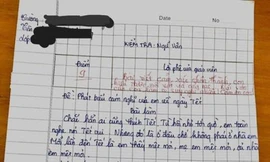 Trường
Tên
Lớp
Date No
KIỂM TRA: Ngữ Văn
Điểm Lời phê của giáo viên
9
Đề: Phát biểu cảm nghĩ của em về ngày Tết
Bài làm
Chắc hẳn ai cũng thích Tết. Từ bé đến giờ, em toàn
nghe nói Tết vui. Nhưng đó là ở đâu chứ không phải ở nhà em.
Mỗi lần đến Tết là em thấy mệt mỏi, mẹ em mệt mỏi, cả nhà
em mệt mỏi.